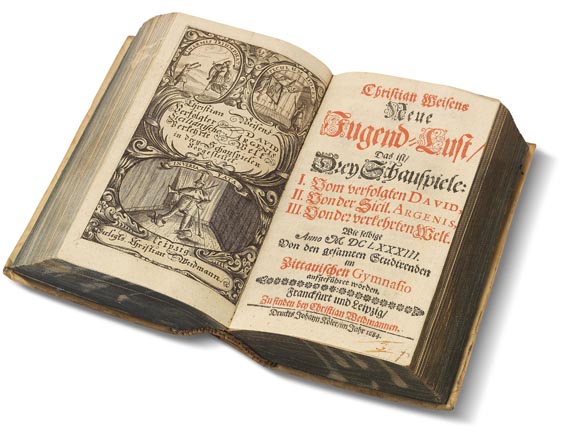 Christian Weisens
Verfolgter DAVID
Sicilianische ARGENIS
Verkehrte Welt
in drey Schauspielen
vorgestellet.
Leipzig
Verlegts Christian Weidmann.
Christian Weisens
Neue
Jugend-Lust/
Das ist/
Drey Schauspiele:
I. Vom verfolgten DAVID,
II. Von der Sicil. ARGENIS,
III. Von der verkehrten Welt.
Wie selbige
Anno M DC LXXXIII.
Von den gesamten Studirenden
im
Zittauischen Gymnasio
auffgeführet worden.
Franckfurt und Leipzig/
Zu finden bey Christian Weidmannen.
Druckts Johann Köler/ im Jahr 1684.